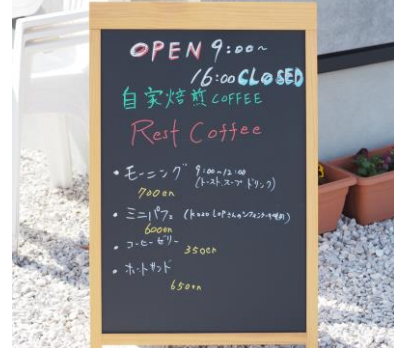 OPEN 9:00~
16:00 CLOSED
自家焙煎 COFFEE
Rest Coffee
・モーニング 9:00~12:00
(トースト スープ ドリンク)
700en
・ミニパフェ
600en
・コーヒーゼリー
350en
・ホットサンド
650en